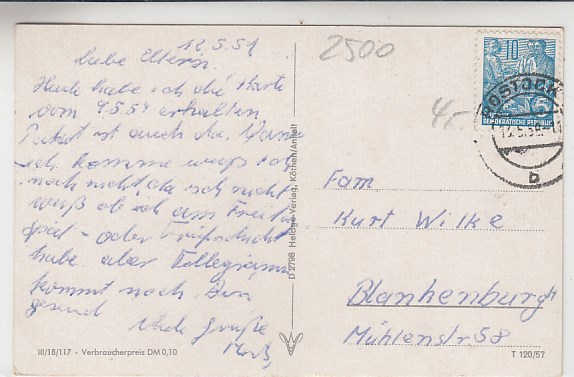 12.5.59
Liebe Eltern.
Heute habe ich die Karte
vom 9.5.59 erhalten.
Paket ist auch da. Wann
ich komme weiß ich
noch nicht da ich nicht
weiß ob ich am
oder
habe. aber Tellegramm
kommt noch. Bin
gesund
Viele Grüße
2500
4,-
10
5
DEUTSCHE
DEMOKRATISCHE REPUBLIK
ROSTOCK
b
Fam
Kurt Wilke
Blankenburg/H
Mühlenstr 58
D 2798 Heldge-Verlag, Köthen/Anhalt
III/18/117 - Verbraucherpreis DM 0,10
T 120/57